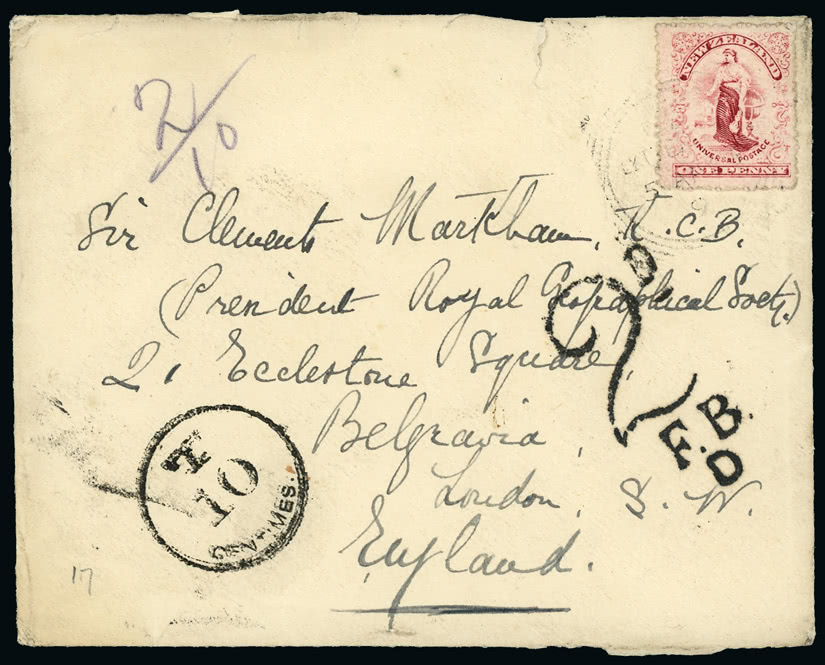 NEW ZEALAND
UNIVERSAL POSTAGE
ONE PENNY
2/10
Sir Clements Markham, K.C.B.
(President Royal Geographical Socty.)
21 Ecclestone Square,
Belgravia,
London, S. W.
England.
2D
F.B.
F.O
T
10
CENTIMES.
17